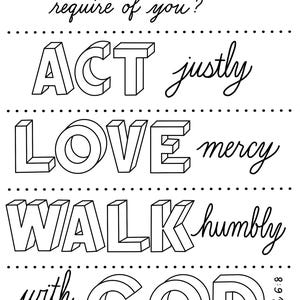 require of you?
ACT justly
LOVE mercy
WALK humbly
with GOD
6:8